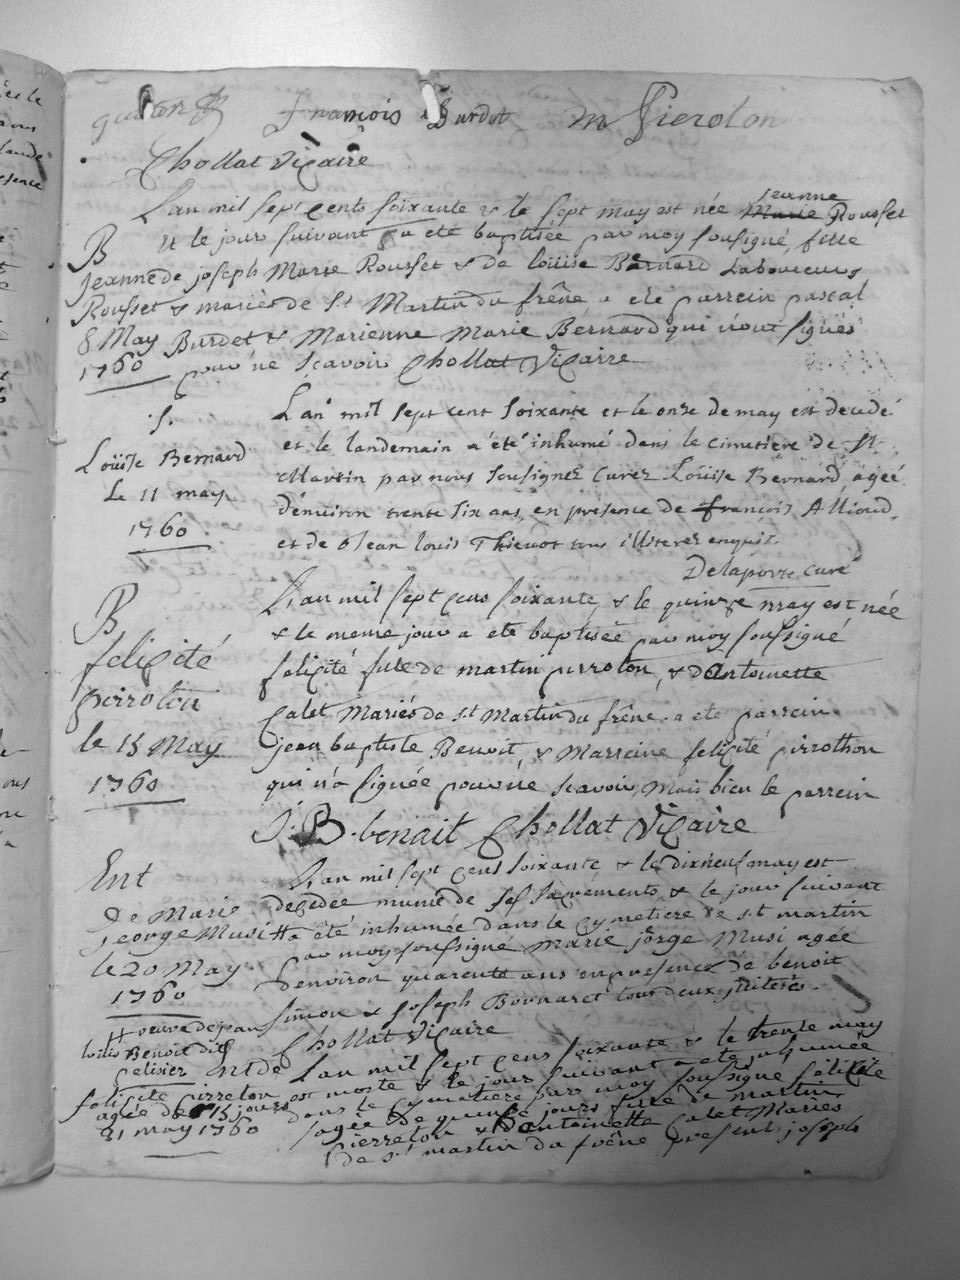 François Burdet m Pierolon
Chollat Vicaire
L'an mil sept cents soixante & le sept may est née Marie jeanne Rousset
B
Jeanne
Rousset
8 May
1760
& le jour suivant a eté baptisée par moy sousigné fille
de joseph Marie Rousset & de loüise Barnard Laboureurs
& mariés de St Martin du frêne a eté parrein pascal
Burdet & Marienne Marie Bernard qui n'ont signés
pour ne scavoir Chollat Vicaire
S.
Loüise Bernard
Le 11 may
1760
L'an mil sept cent soixante et le onze de may est decedé
et le landemain a été inhumé dans le cimetiere de St
Martin par nous soussignez curez Loüise Bernard, agée
d'environ trente six ans, en présence de françois Alliod,
et de Jean louis Thievot tous illiterez enquis.
Delaporte, curé
B
felicité
pirroton
le 15 May
1760
L'an mil sept cens soixante, & le quinze may est née
& le meme jour a eté baptisée par moy soussigné
felicité fille de martin pirroton, & d'Antoinette
Calet Mariés de St Martin du frêne. a eté parrein
jean baptiste Benoit, & Marreine felicité pirrothon
qui n'a signée pour ne scavoir, mais bien le parrein
J. B. benoit Chollat Vicaire
Ent
De Marie
jeorge Musi #
le 20 May
1760
# veuve de jean
loüis Benoit dit
pelisier
L'an mil sept cens soixante & le dixneuf may est
decedée munie de ses sacréments, & le jour suivant
a été inhumée dans le cymetiere de st martin
par moy soussigné marie jorge Musi agée
d'environ quarente ans en presence de benoit
simon & joseph Bonnaret tous deux jlliterés.
Chollat Vicaire
Ent de
felicité Pirreton
agée de 15 jours
31 may 1760
L'an mil sept cens soixante & le trente may
est morte & le jour suivant a eté jnhumée
dans le cymetiere par moy soussigné félicité
agée de quinze jours fille de martin
Pierreton & d'antoinette Calet Mariés
de st martin du frêne present joseph